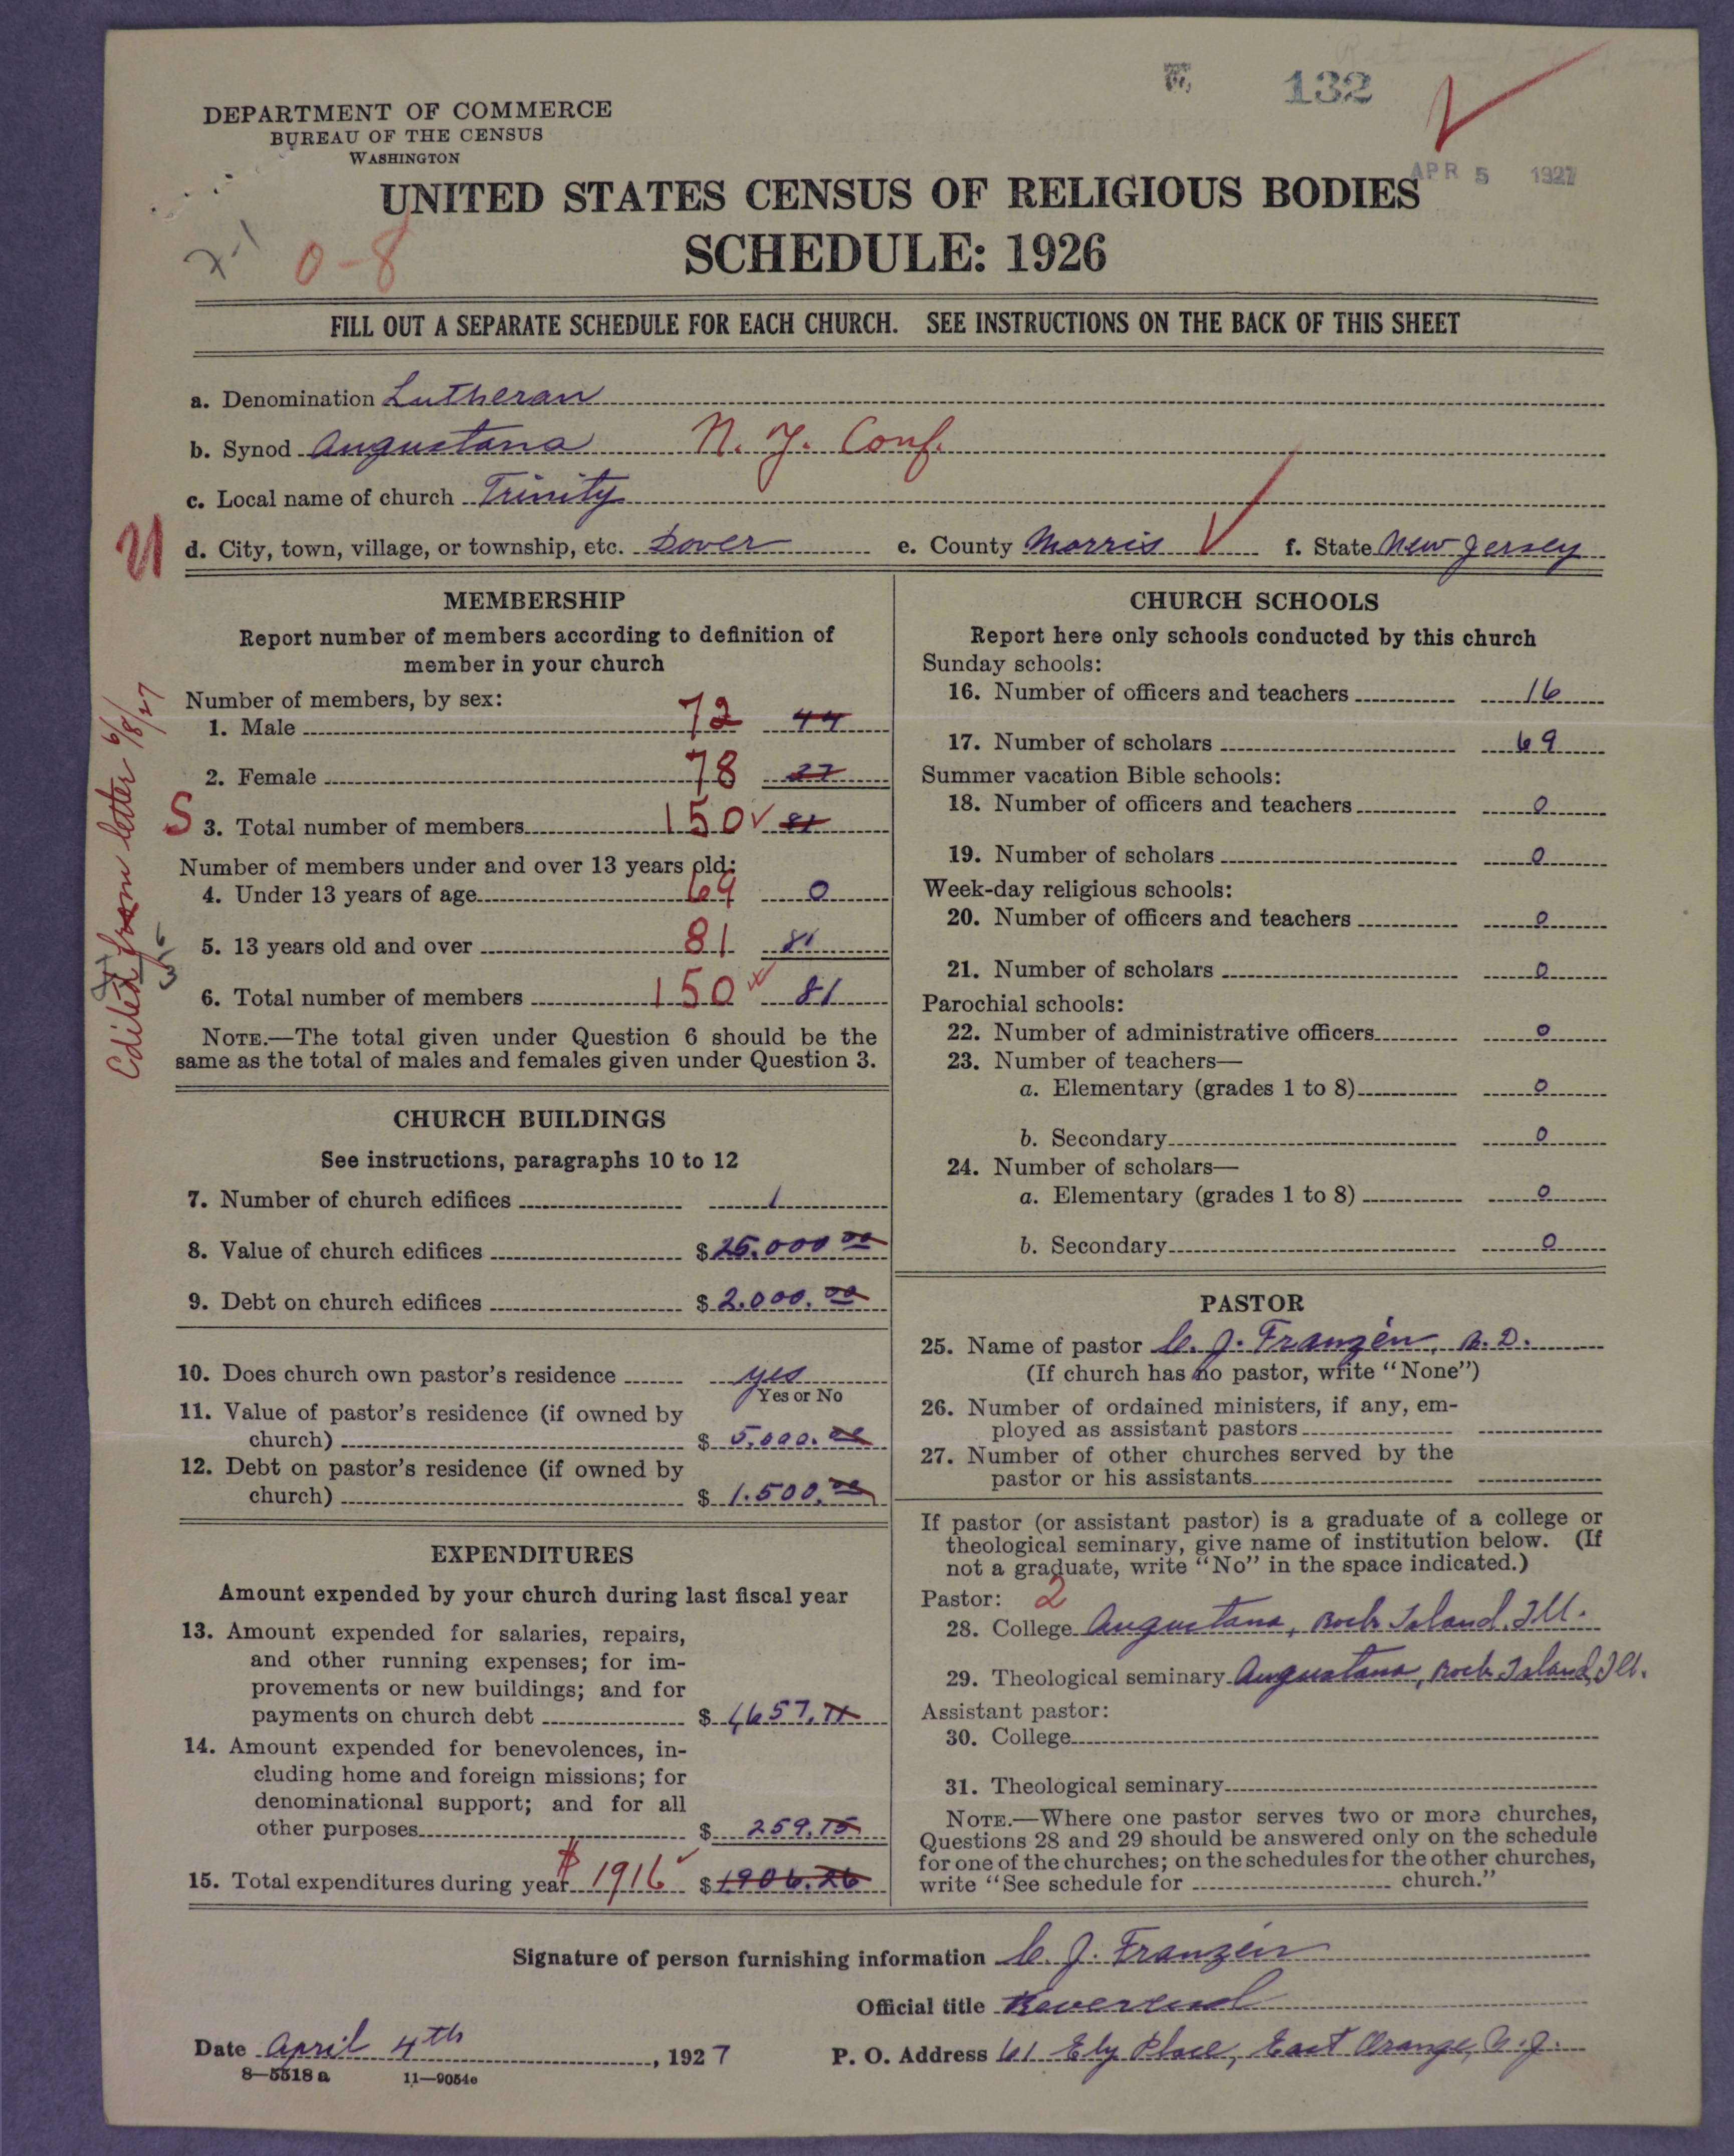 132
APR 5 1927
DEPARTMENT OF COMMERCE
BUREAU OF THE CENSUS
WASHINGTON
UNITED STATES CENSUS OF RELIGIOUS BODIES
SCHEDULE: 1926
0-8
FILL OUT A SEPARATE SCHEDULE FOR EACH CHURCH. SEE INSTRUCTIONS ON THE BACK OF THIS SHEET
a. Denomination Lutheran
b. Synod Augustana N. Y. Conf.
c. Local name of church Trinity
d. City, town, village, or township, etc. Dover e. County Morris f. State New Jersey
Edited from letter 6/8/27
MEMBERSHIP
Report number of members according to definition of
member in your church
Number of members, by sex:
1. Male 72 44
2. Female 78 37
S 3. Total number of members 150 81
Number of members under and over 13 years old:
4. Under 13 years of age 69 0
5. 13 years old and over 81 81
6. Total number of members 150 81
NOTE.—The total given under Question 6 should be the
same as the total of males and females given under Question 3.
CHURCH BUILDINGS
See instructions, paragraphs 10 to 12
7. Number of church edifices 1
8. Value of church edifices $ 25.000 00
9. Debt on church edifices $ 2.000.00
10. Does church own pastor's residence yes
Yes or No
11. Value of pastor's residence (if owned by
church) $ 5.000.00
12. Debt on pastor's residence (if owned by
church) $ 1.500.00
EXPENDITURES
Amount expended by your church during last fiscal year
13. Amount expended for salaries, repairs,
and other running expenses; for im-
provements or new buildings; and for
payments on church debt $ 1,657.71
14. Amount expended for benevolences, in-
cluding home and foreign missions; for
denominational support; and for all
other purposes $ 259.75
15. Total expenditures during year $ 1916 $ 1.906.26
CHURCH SCHOOLS
Report here only schools conducted by this church
Sunday schools:
16. Number of officers and teachers 16
17. Number of scholars 69
Summer vacation Bible schools:
18. Number of officers and teachers 0
19. Number of scholars 0
Week-day religious schools:
20. Number of officers and teachers 0
21. Number of scholars 0
Parochial schools:
22. Number of administrative officers 0
23. Number of teachers—
a. Elementary (grades 1 to 8) 0
b. Secondary 0
24. Number of scholars—
a. Elementary (grades 1 to 8) 0
b. Secondary 0
PASTOR
25. Name of pastor C. J. Franzén, B. D.
(If church has no pastor, write "None")
26. Number of ordained ministers, if any, em-
ployed as assistant pastors
27. Number of other churches served by the
pastor or his assistants
If pastor (or assistant pastor) is a graduate of a college or
theological seminary, give name of institution below. (If
not a graduate, write "No" in the space indicated.)
Pastor: 2
28. College Augustana, Rock Island, Ill.
29. Theological seminary Augustana, Rock Island, Ill.
Assistant pastor:
30. College
31. Theological seminary
NOTE.—Where one pastor serves two or more churches,
Questions 28 and 29 should be answered only on the schedule
for one of the churches; on the schedules for the other churches,
write "See schedule for church."
Signature of person furnishing information C. J. Franzén
Official title Reverend
Date April 4th, 1927 P. O. Address 61 Ely Place, East Orange, N. J.
8—5518 a 11—9054e